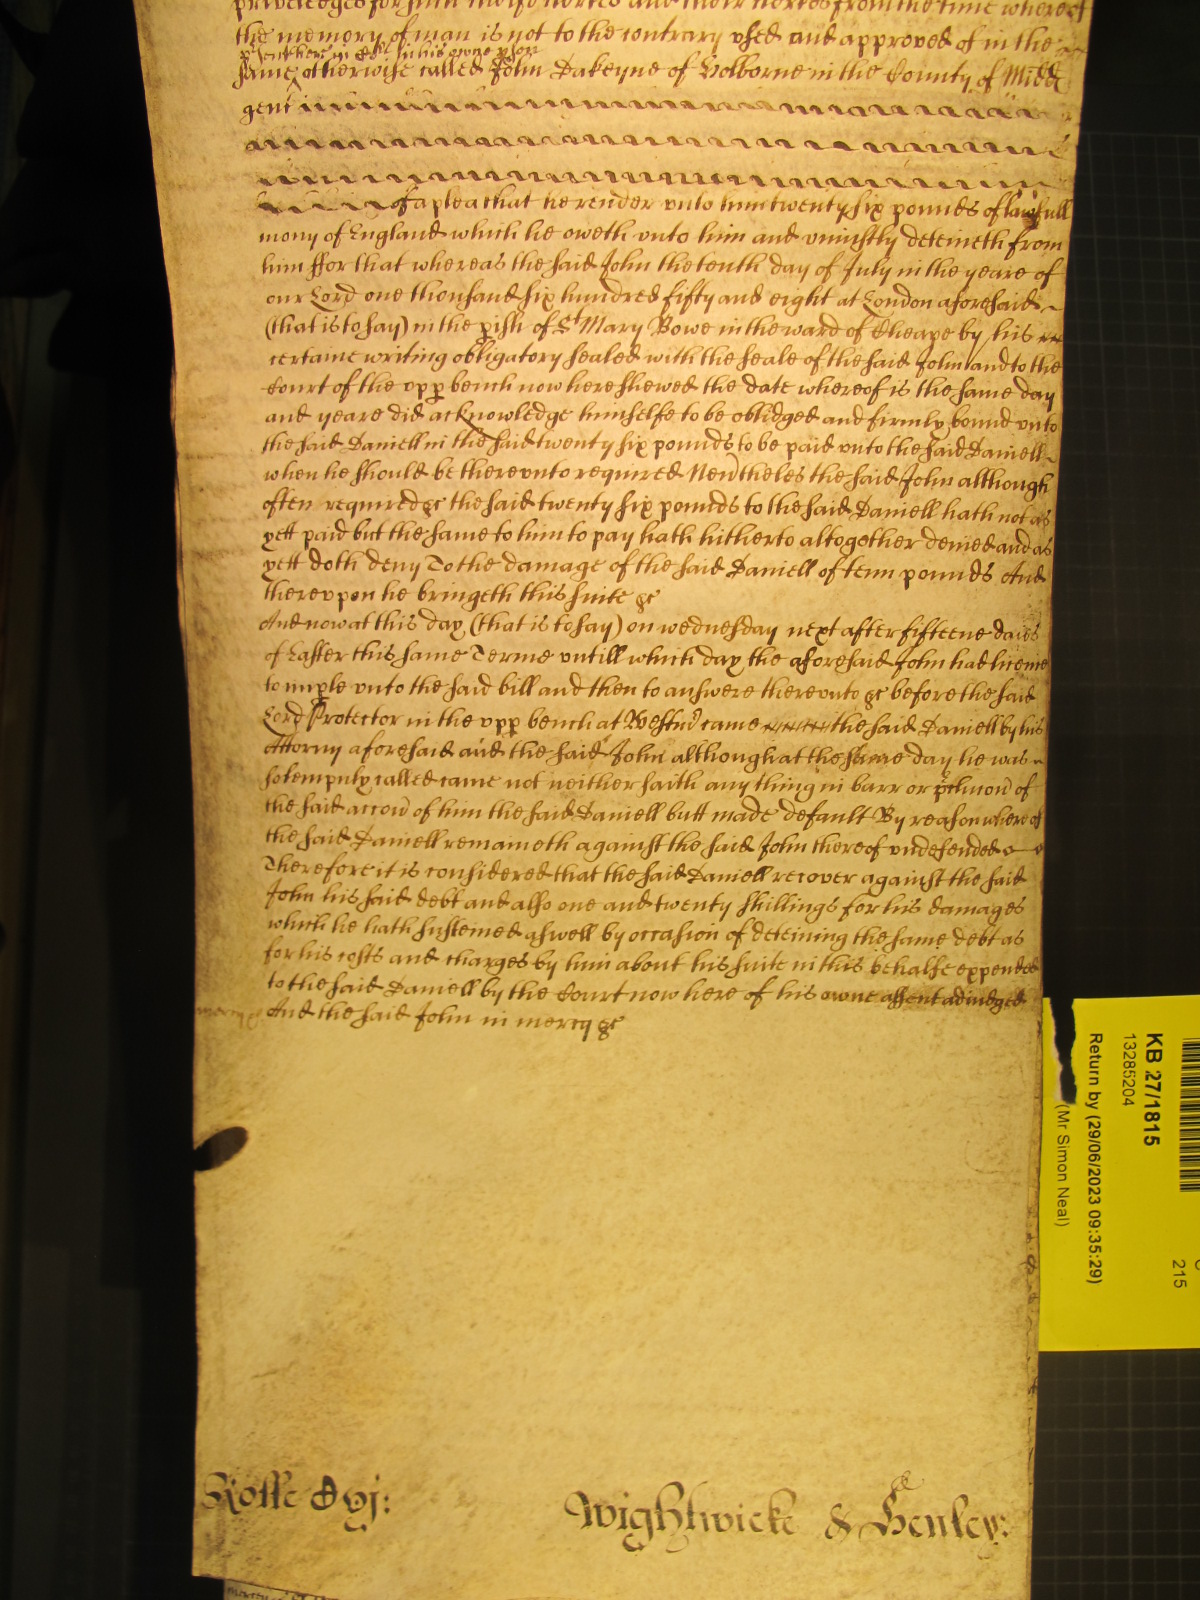 priviledges for such their Clerkes and their Clerkes from the time whereof
the memory of man is not to the contrary vsed and approved of in the
p'sent here in Court in his owne p'son
same otherwise called John Dakeyne of Holborne in the County of Midd
gent
of a plea that he render vnto him twenty six pounds of lawfull
mony of England which he oweth vnto him and vniustly deteineth from
him ffor that whereas the said John the tenth day of July in the yeare of
our Lord one thousand six hundred fifty and eight at London aforesaid
(that is to say) in the pish of St Mary Bowe in the ward of Cheape by his
certaine writing obligatory sealed with the seale of the said John and to the
Court of the vpp bench now here shewed the date whereof is the same day
and yeare did acknowledge himselfe to be obliged and firmly bound vnto
the said Daniell in the said twenty six pounds to be paid vnto the said Daniell
when he should be therevnto required Nev'theles the said John although
often required &c the said twenty six pounds to the said Daniell hath not as
yett paid but the same to him to pay hath hitherto altogether denied and as
yett doth deny To the damage of the said Daniell of tenn pounds And
therevpon he bringeth this suite &c
And now at this day (that is to say) on wednesday next after fifteene daies
of Easter this same Terme vntill which day the aforesaid John had licence
to imple vnto the said bill and then to answere therevnto &c before the said
Lord Protector in the vpp bench at Westm' came the said Daniell by his
Attorny aforesaid and the said John although at the same day he was
solempnly called came not neither saith any thing in barr or p'clusion of
the said accon' of him the said Daniell butt made default By reason whereof
the said Daniell remaineth against the said John thereof vndefended
Therefore it is considered that the said Daniell recover against the said
John his said debt and also one and twenty shillings for his damages
which he hath susteined aswell by occasion of deteining the same debt as
for his costs and charges by him about his suite in this behalfe expended
to the said Daniell by the Court now here of his owne assent adiudged
mercy &c And the said John in mercy &c
Wightwicke & Henley:
KB 27/1815
13285204
Return by (29/06/2023 09:35:29)
(Mr Simon Neal)
215